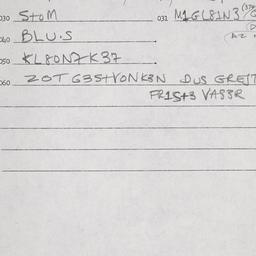 030 StoM 031 M1GL81N3
040 BLU.S
050 KL80N7K37
060 ZOT G3StVONK8N DUS GREIT
FR1St3 VASS8R